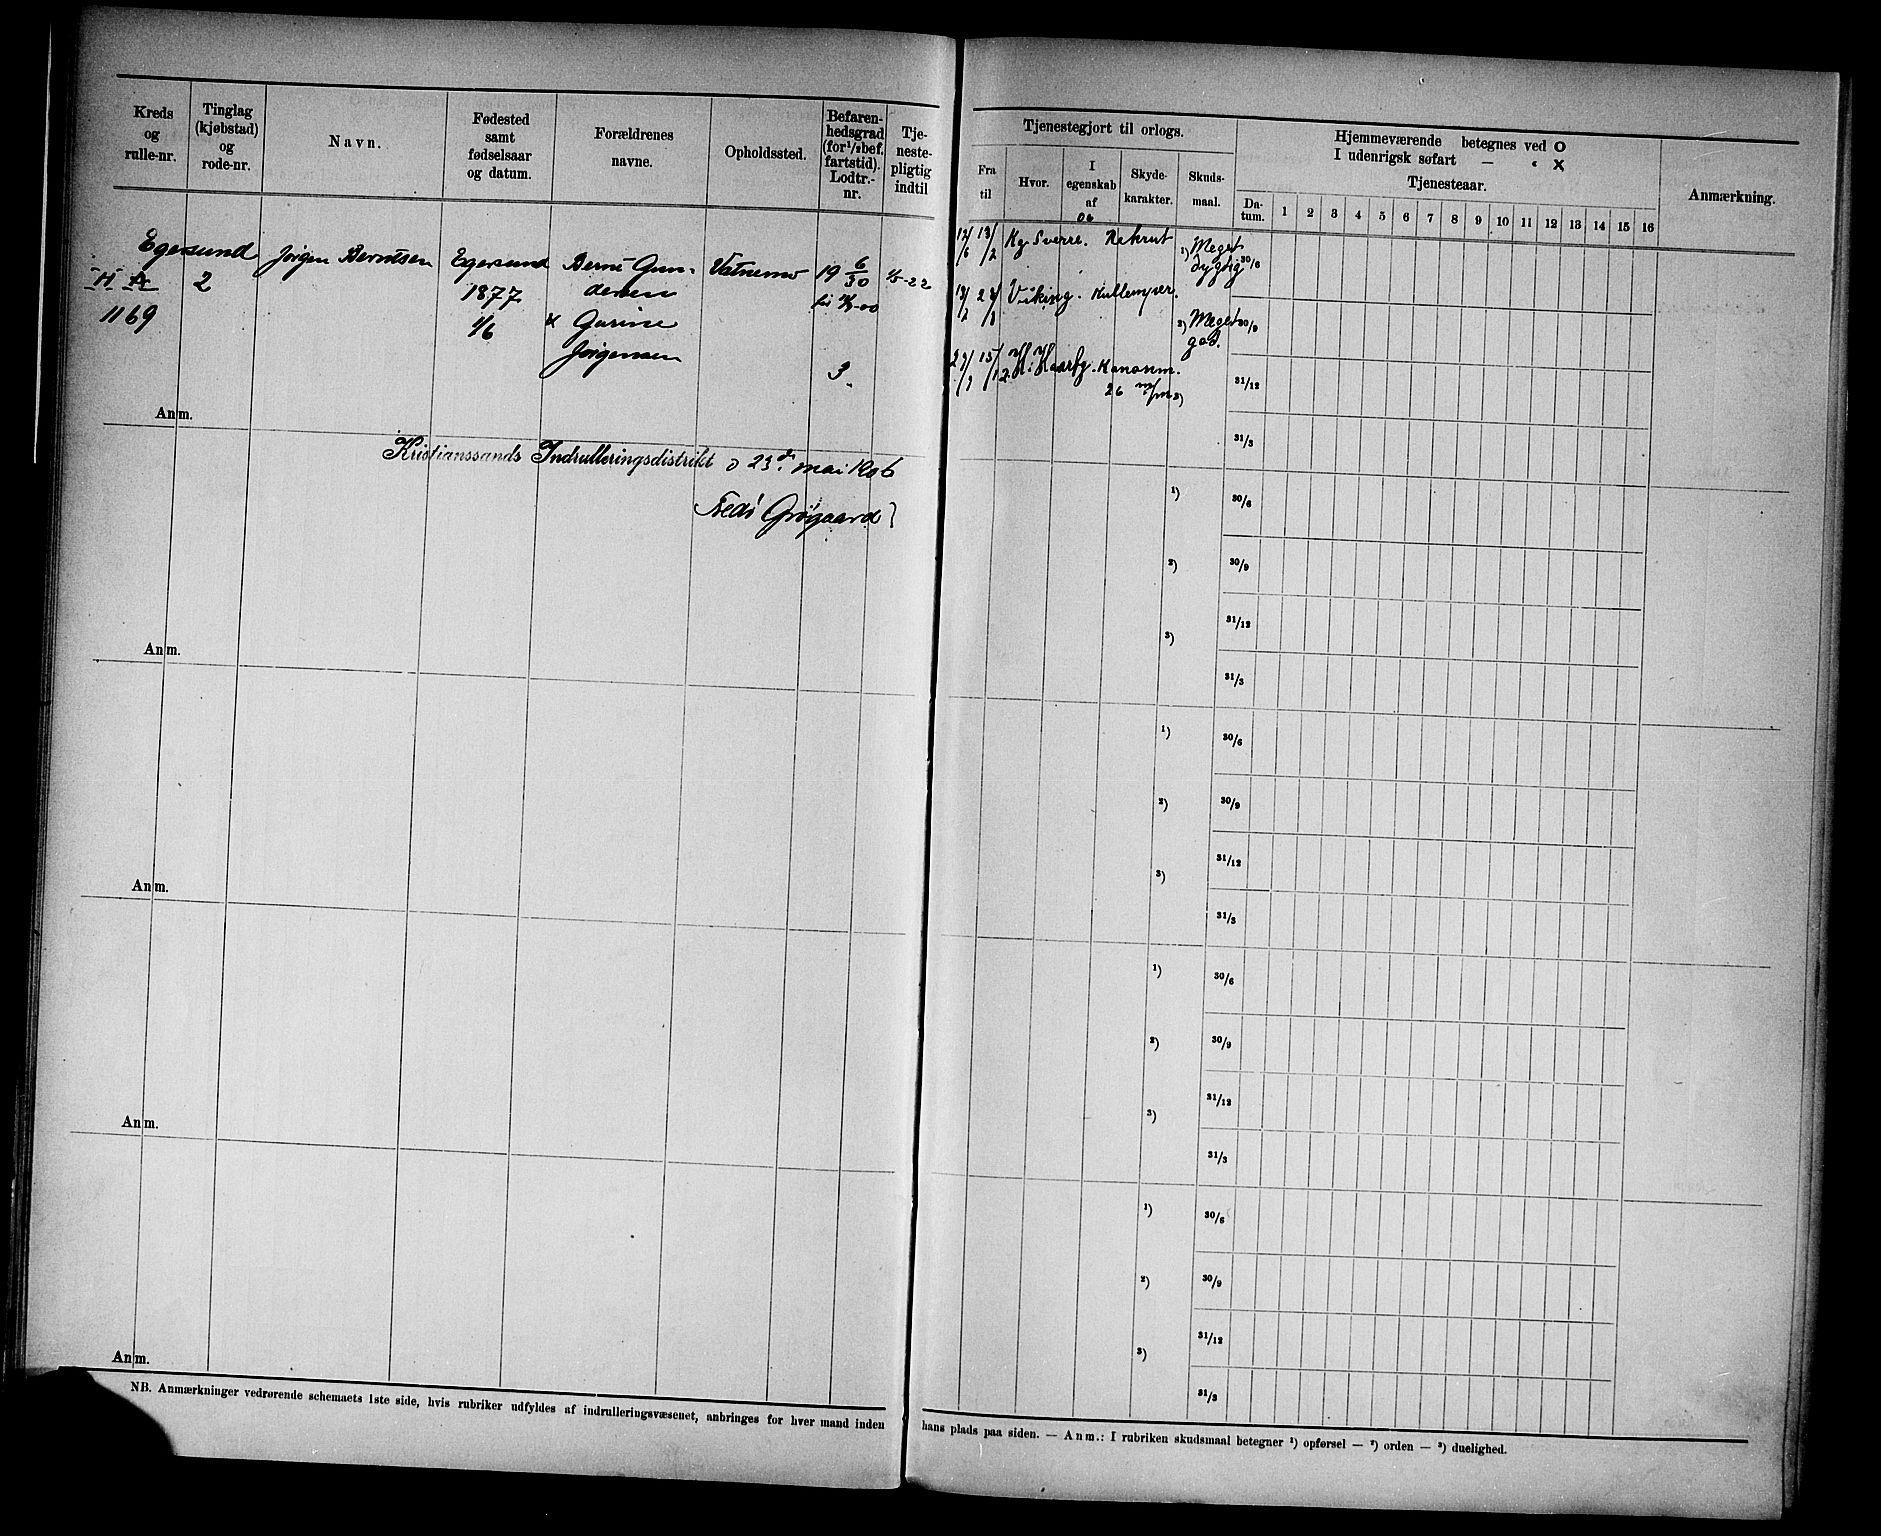 Kreds og rulle-nr.
Tinglag (kjøbstad) og rode-nr.
Navn.
Fødested samt fødselsaar og datum.
Forældrenes navne.
Opholdssted.
Befaren-hedsgrad (for ½bef. fartstid). Lodtr.-nr.
Tje-neste-pligtig indtil
Egersund
1169
2
Jørgen Berntsen
Egersund
1877
4/6
Bernt Gun-
dersen
Jørgensen
Vatnemo
19 6/30
3.
Anm.
Kristianssands Indrulleringsdistrikt d 23d mai 1906
Grøgaard
Anm.
Anm.
Anm.
Anm.
NB. Anmærkninger vedrørende schemaets 1ste side, hvis rubriker udfyldes af indrulleringsvæsenet, anbringes for hver mand inden
Tjenestegjort til orlogs.
Fra til
Hvor.
I egenskab af
Skyde-karakter.
Skuds-maal.
Hjemmeværende betegnes ved O
I udenrigsk søfart — " X
Tjenesteaar.
Da-tum. 1 2 3 4 5 6 7 8 9 10 11 12 13 14 15 16
Anmærkning.
06
12/6 13/2 Kg Sverre. Rekrut
1) Meget dygtig
30/6
Viking.
2) Meget god.
30/9
Kanonm.
26 m/m
3)
31/12
31/3
1)
30/6
2)
30/9
31/12
3)
31/3
1)
30/6
2)
30/9
31/12
3)
31/3
1)
30/6
2)
30/9
31/12
3)
31/3
1)
30/6
2)
30/9
31/12
3)
31/3
hans plads paa siden. — Anm.: I rubriken skudsmaal betegner ¹) opførsel — ²) orden — ³) duelighed.